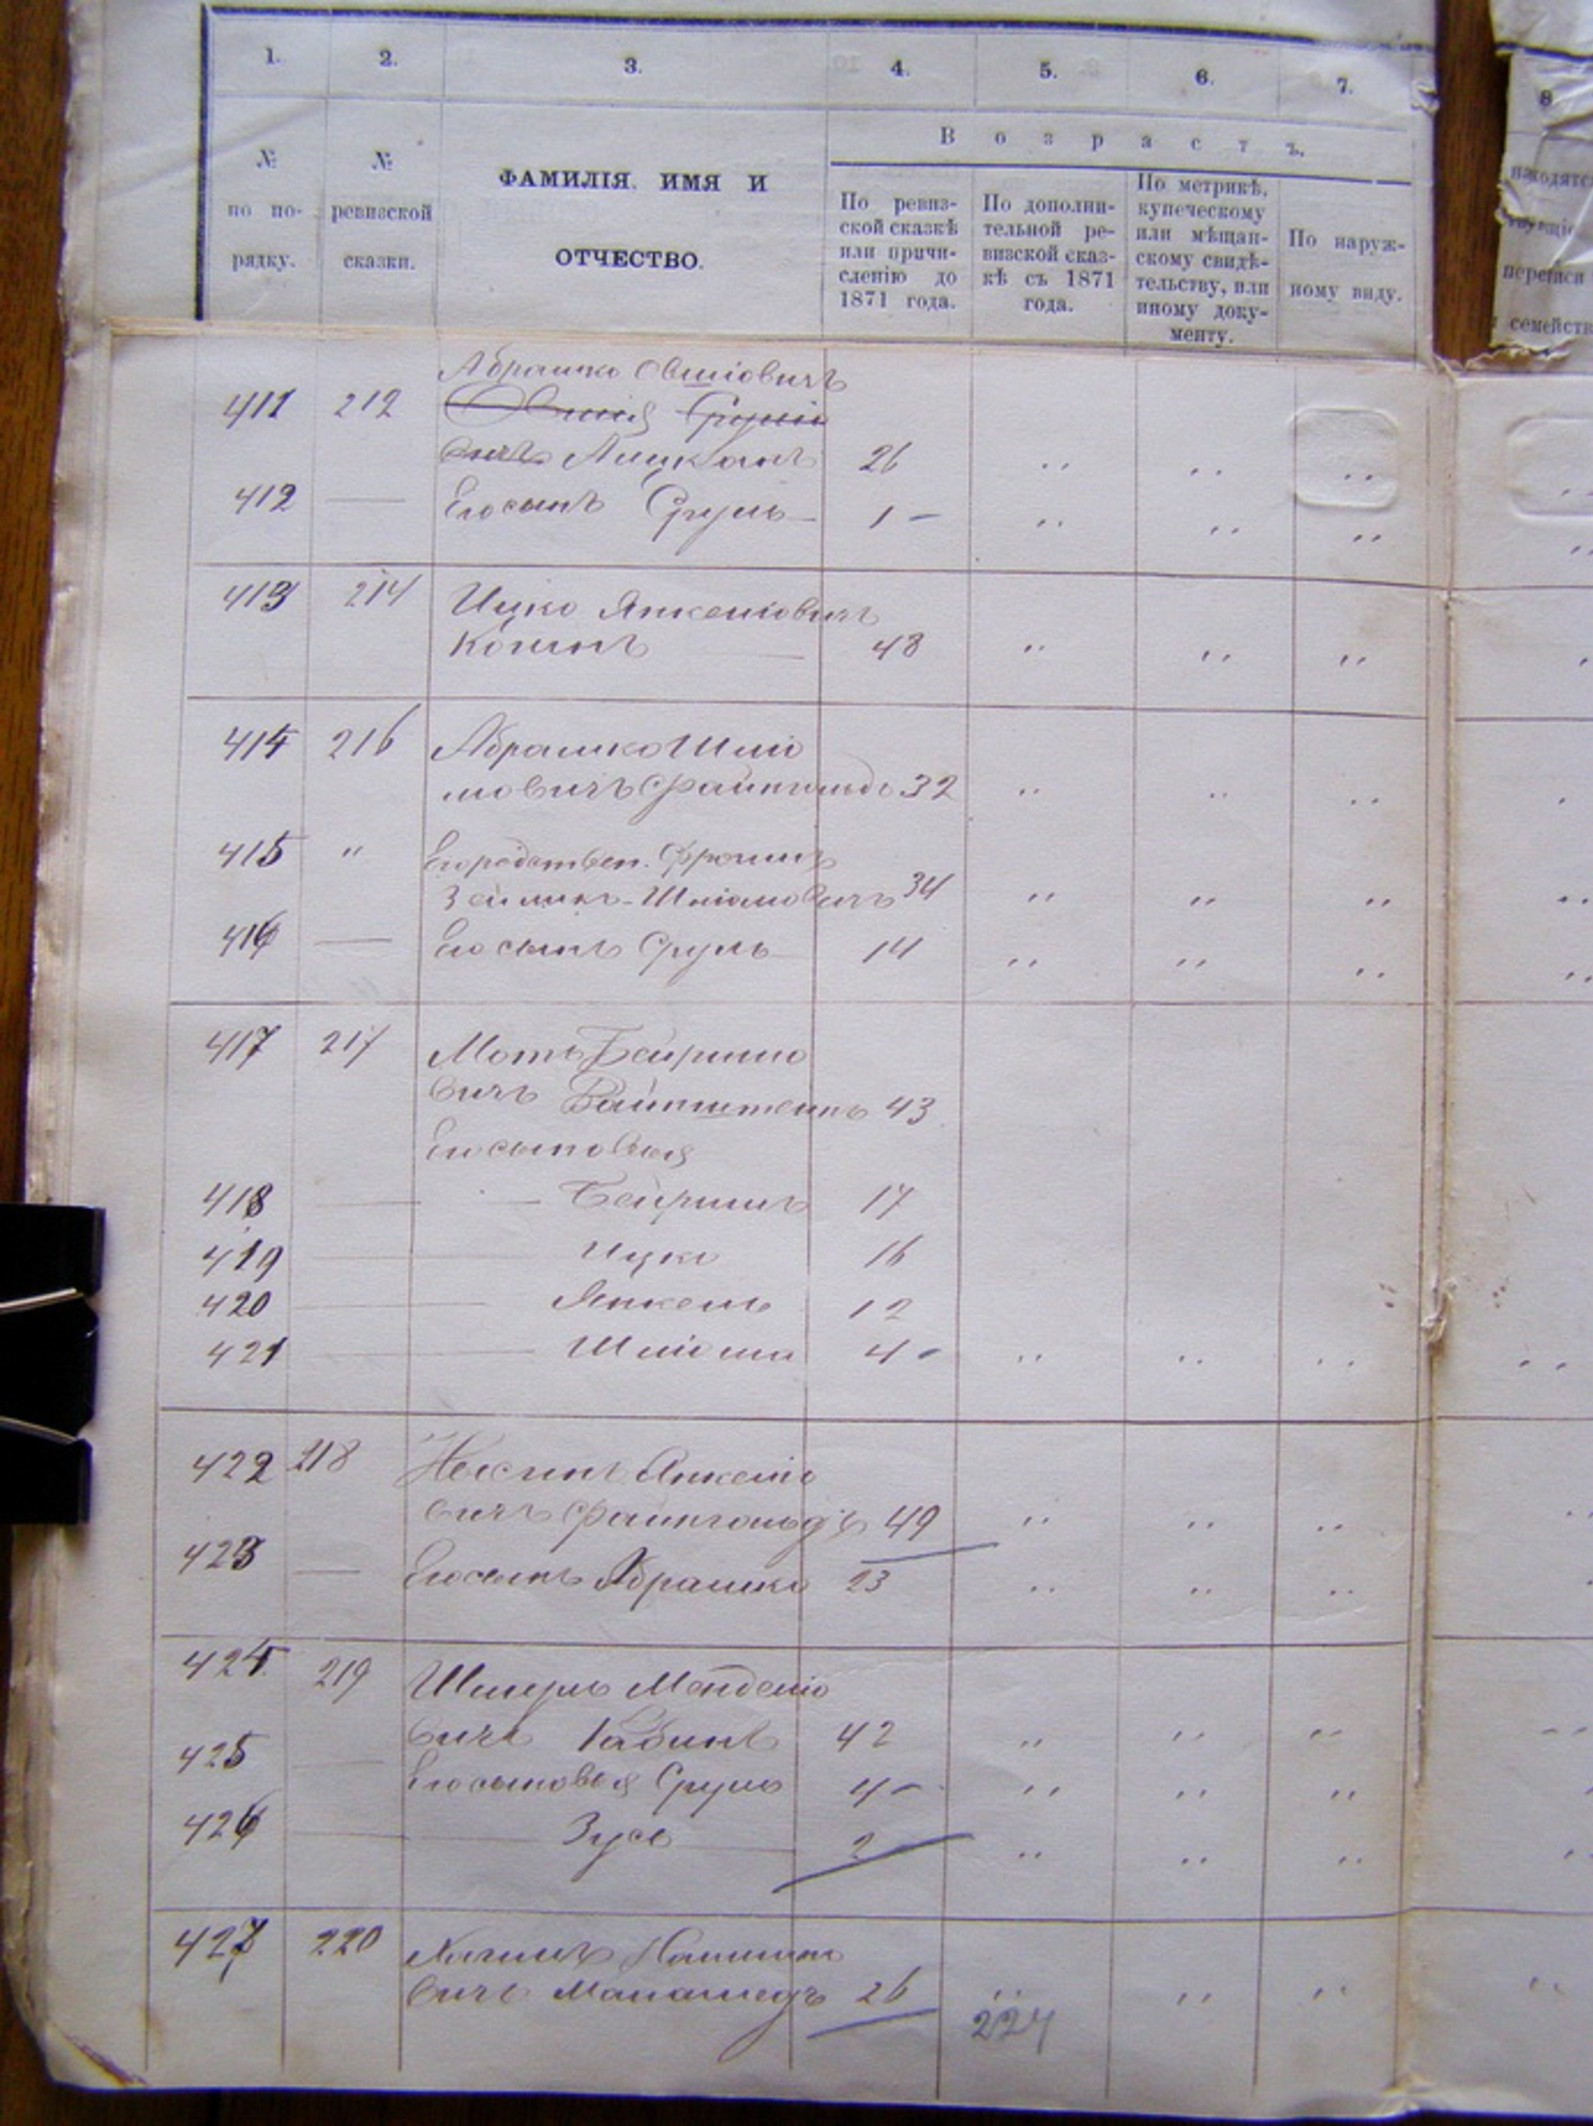 1. 2. 3. 4. 5. 6. 7.
8
В о з р а с т ъ.
№ по по-рядку.
№ ревизской сказки.
ФАМИЛІЯ, ИМЯ И
ОТЧЕСТВО.
По ревиз-
ской сказкѣ
или причи-
сленію до
1871 года.
По дополни-
тельной ре-
визской сказ-
кѣ съ 1871
года.
По метрикѣ,
купеческому
или мѣщан-
скому свидѣ-
тельству, или
иному доку-
менту.
По наруж-
ному виду.
Абрашко Овшіовичъ
411 212 Овшія Срулio
вичъ 26
412 — Его сынъ Сруль — 1 —
413 214 Ицко Янкеліовичъ
Коганъ — 48
414 216 Абрашко Шліо
мовичъ Файнгольдъ 32
415 " Его родствен. Фроимъ
Зейликъ-Шліомовичъ 34
416 — Его сынъ Сруль 14
417 217 Мотъ Бейришо
вичъ Вайнштейнъ 43
Его сыновья
418 — Бейришъ 17
419 — Ицко 16
420 — Янкель 12
421 — Шліома 4 -
422 218 Янкеліо
вичъ Файнгольдъ 49
423 — Его сынъ Абрашко 23
424 219 Шмуль Менделіо
вичъ Рабинъ 42
425 — Его сыновья Сруль 4 -
426 — Зусь — 2 -
427 220
вичъ 26
224